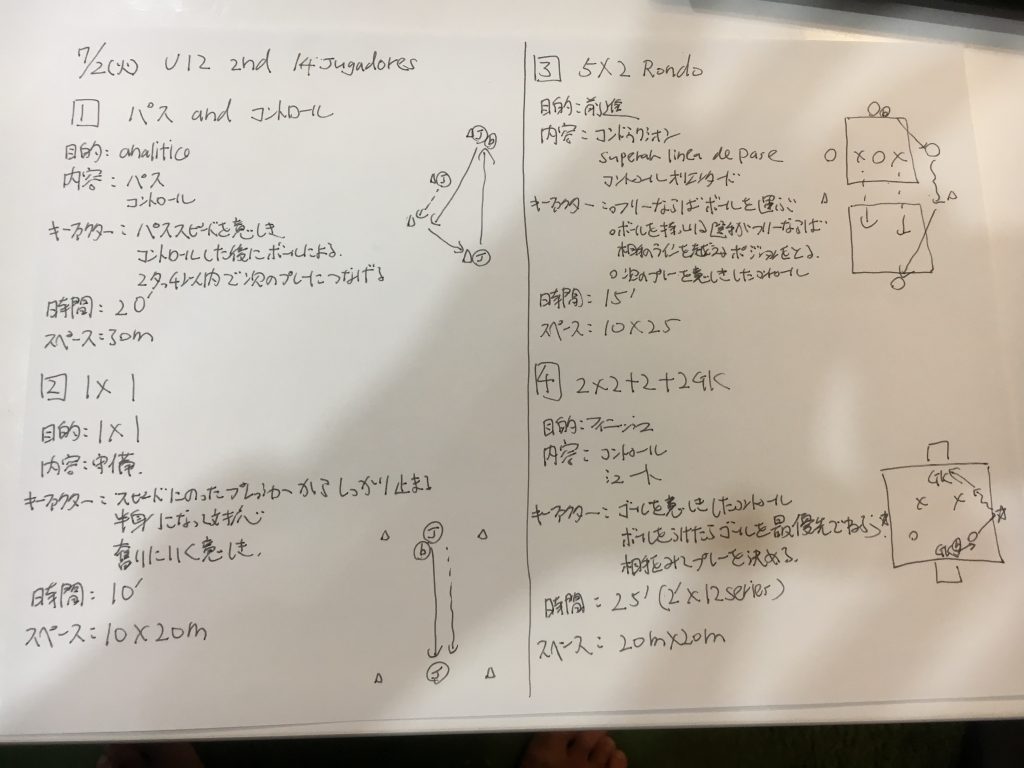 7/2(火) U12 2nd 14 Jugadores
1 パス and コントロール
目的: analitico
内容: パス
コントロール
キーファクター: パススピードを意しき
コントロールした後にボールによる.
2タッチ以内で次のプレーにつなげる
時間: 20'
スペース: 30m
J
b
J
J
2 1×1
目的: 1×1
内容: 守備.
キーファクター: スピードにのったプレッシャーからしっかり止まる
半身になって対応
奪いにいく意しき.
時間: 10'
スペース: 10×20m
J
b
J
3 5×2 Rondo
目的: 前進
内容: コンドゥクシオン
superah linea de pase
コントロールオリエンタード
キーファクター: ○フリーならばボールを運ぶ
○ボールを持っいる選手がフリーならば
相手のラインを越えるポジションをとる.
○次のプレーを意しきしたコントロール
時間: 15'
スペース: 10×25
4 2×2+2+2GK
目的: フィニッシュ
内容: コントロール
シュート
キーファクター: ゴールを意しきしたコントロール
ボールをうけたらゴールを最優先でねらう.
相手をみてプレーを決める.
時間: 25' (2'×12series)
スペース: 20m×20m
GK
× ×
GK